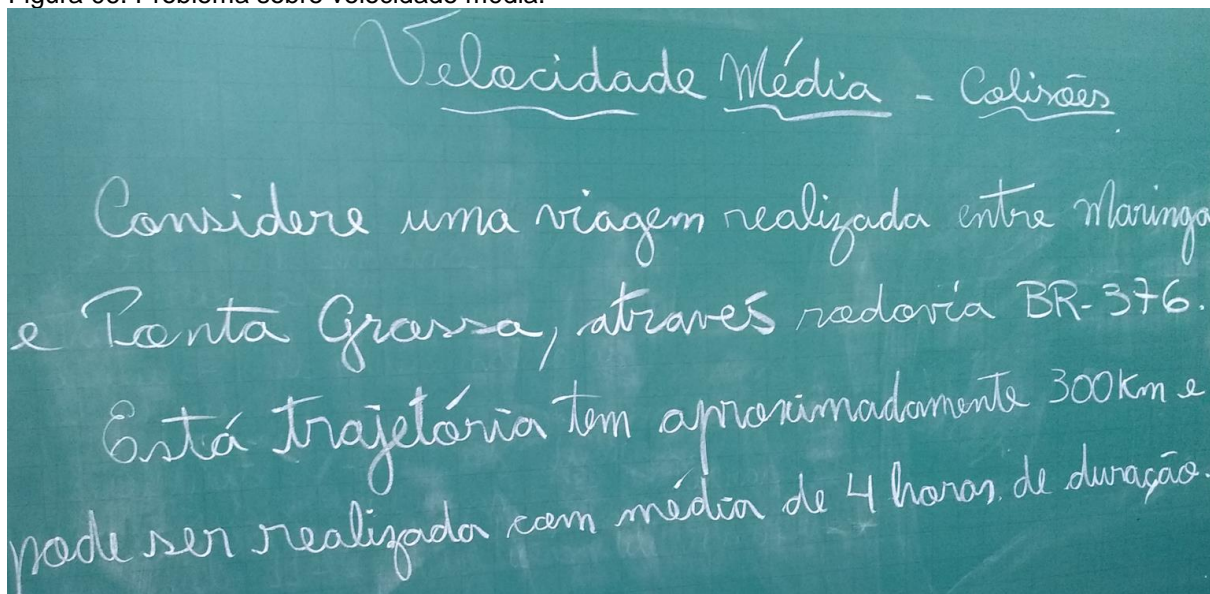 Figura 06: Problema sobre velocidade média.
Velocidade Média - Colisões
Considere uma viagem realizada entre Maringa
e Ponta Grossa, através rodovia BR-376.
Está trajetória tem aproximadamente 300Km e
pode ser realizada com média de 4 horas de duração.